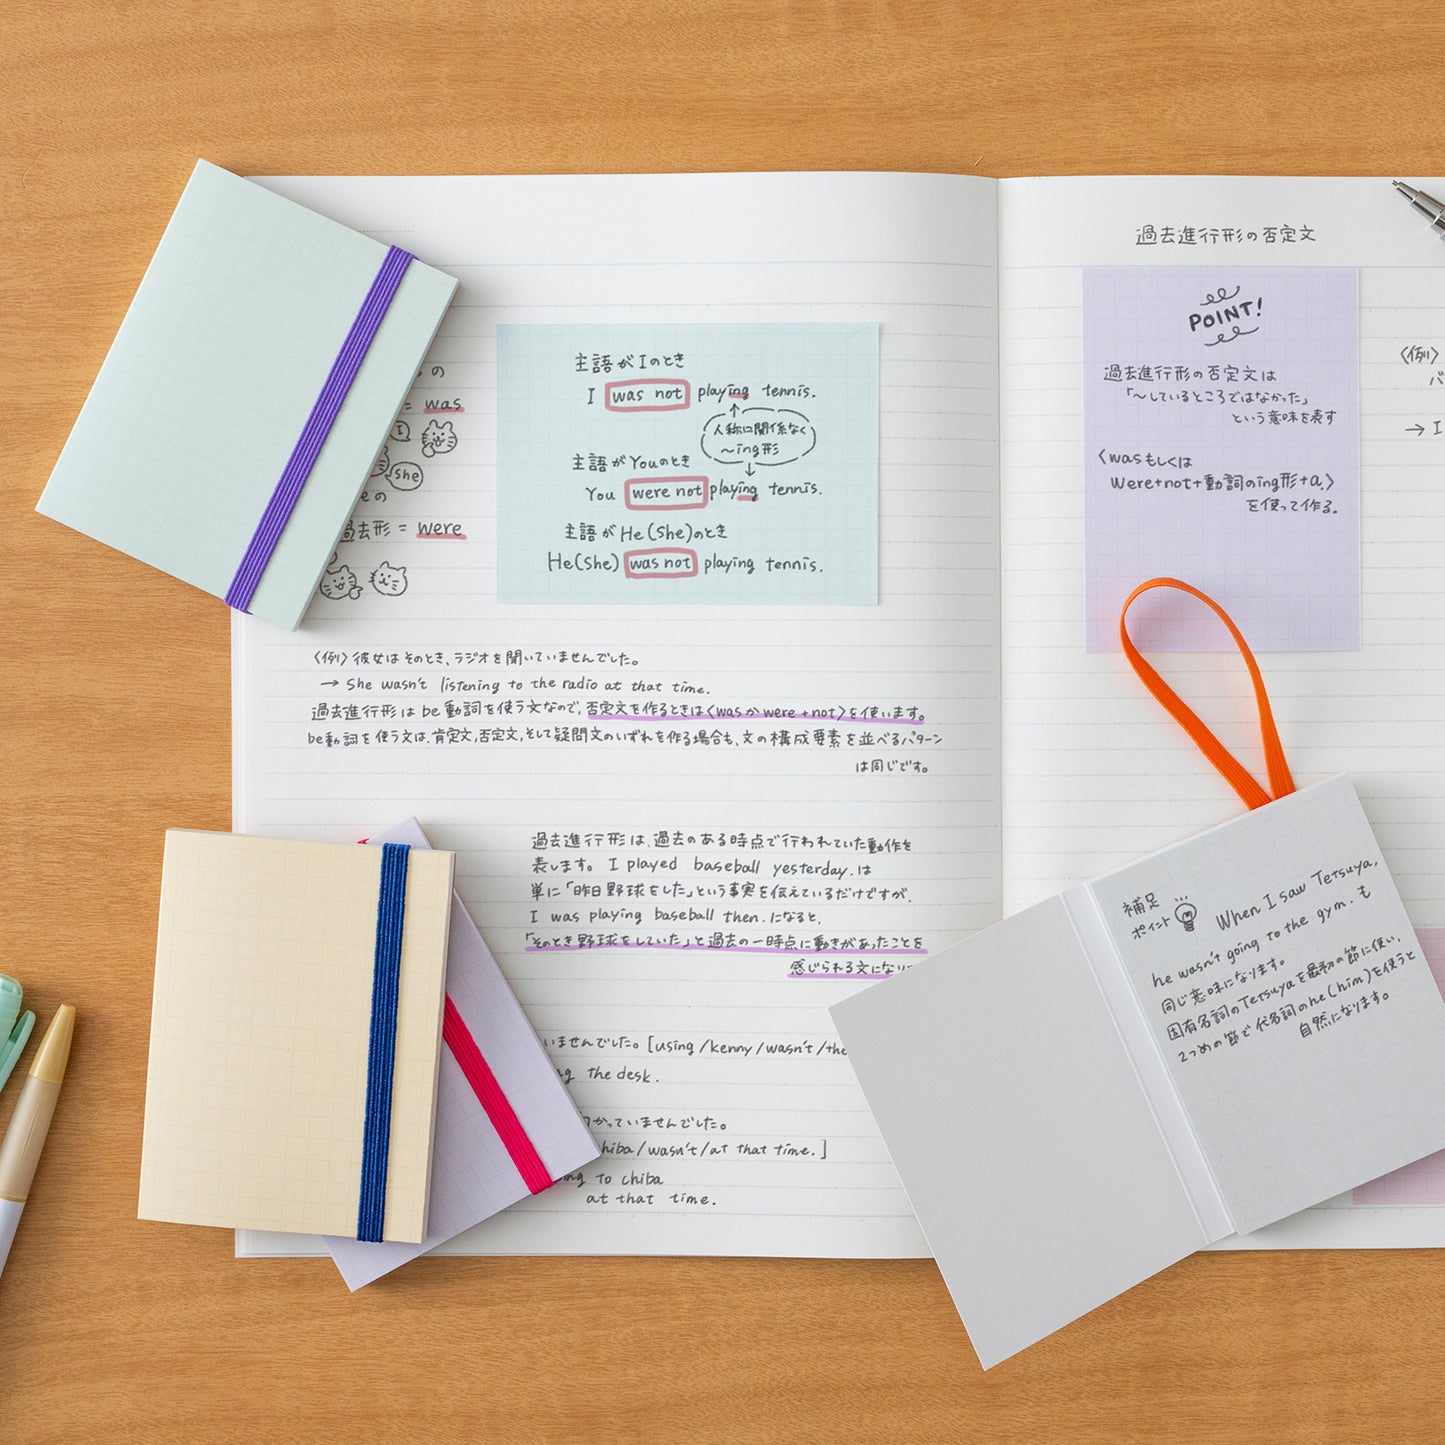 の
= was
I
She
の
過去形 = were
主語がIのとき
I was not playing tennis.
人称に関係なく
〜ing形
主語がYouのとき
You were not playing tennis.
主語がHe(She)のとき
He(She) was not playing tennis.
〈例〉彼女はそのとき、ラジオを聞いていませんでした。
→ She wasn't listening to the radio at that time.
過去進行形はbe動詞を使う文なので、否定文を作るときは〈wasかwere+not〉を使います。
be動詞を使う文は、肯定文、否定文、そして疑問文のいずれを作る場合も、文の構成要素を並べるパターン
は同じです。
過去進行形は、過去のある時点で行われていた動作を
表します。 I played baseball yesterday. は
単に「昨日野球をした」という事実を伝えているだけですが、
I was playing baseball then. になると、
「そのとき野球をしていた」と過去の一時点に動きがあったことを
感じられる文になり
いませんでした。[using/kenny/wasn't/the
the desk.
かっていませんでした。
hiba/wasn't/at that time.]
ng to chiba
at that time.
過去進行形の否定文
POINT!
過去進行形の否定文は
「〜しているところではなかった」
という意味を表す
〈wasもしくは
were+not+動詞のing形+a.〉
を使って作る。
〈例〉
バ
→ I
補足
ポイント
When I saw Tetsuya,
he wasn't going to the gym. も
同じ意味になります。
固有名詞のTetsuyaを最初の節に使い、
2つめの節で代名詞のhe(him)を使うと
自然になります。